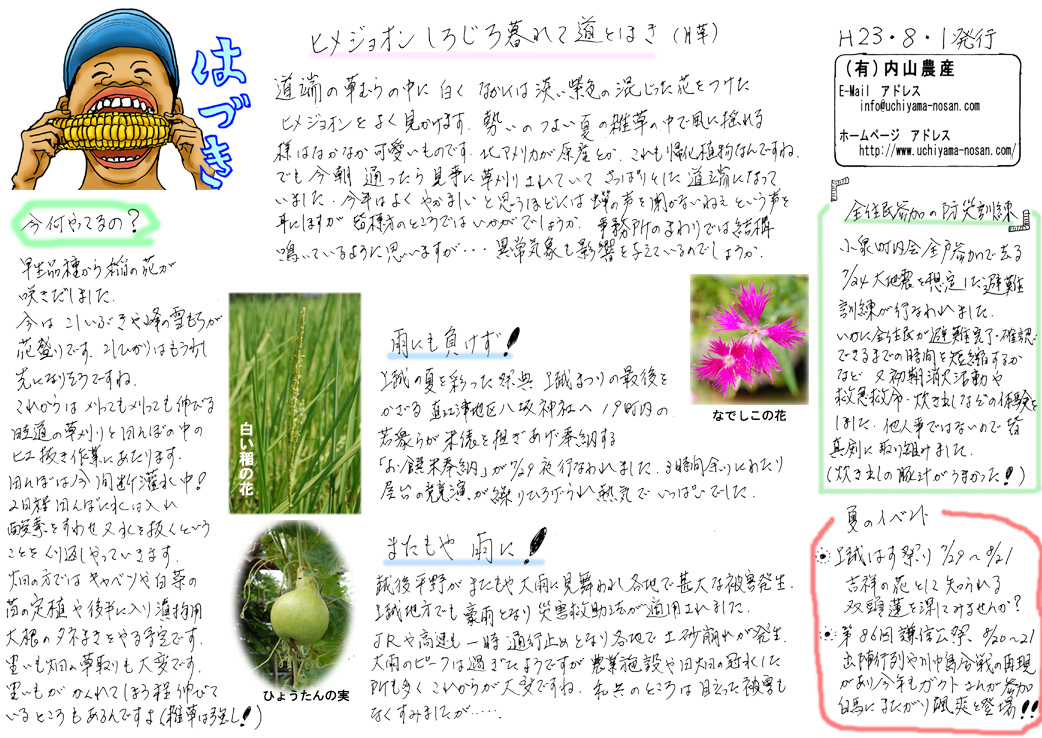 はづき
ヒメジョオン しろじろ暮れて 道とほき (片草)
H23・8・1発行
(有)内山農産
E-Mail アドレス
info@uchiyama-nosan.com
ホームページ アドレス
http://www.uchiyama-nosan.com/
道端の草むらの中に白く なかには淡い紫色の混じった花をつけた
ヒメジョオンをよく見かけます. 勢いのつよい夏の雑草の中で風に揺れる
様はなかなか可愛いものです. 北アメリカが原産とか. これも帰化植物なんですね.
でも今朝 通ったら見事に草刈りされていて さっぱりとした道端になって
いました. 今年はよくやかましいと思うほどには蝉の声を聞かないねぇという声を
耳にしますが 皆様方のところではいかがでしょうか. 事務所のまわりでは結構
鳴いているように思いますが・・・ 異常気象も影響を与えているのでしょうか.
今何やってるの?
早生品種から稲の花が
咲きだしました.
今は こしいぶきや峰の雪もちが
花盛りです. コシヒカリはもう少し
先になりそうですね.
これからは 刈っても刈っても伸びる
畦道の草刈りと田んぼの中の
ヒエ抜き作業にあたります.
田んぼは今 間断灌水中!
2日程田んぼに水は入れ
酸素をすわせ 又水を抜くという
ことをくり返しやっていきます.
畑の方では キャベツや白菜の
苗の定植や後半に入り漬物用
大根のタネまきをやる予定です.
暑いも畑の草取りも大変です.
里いもが かくれてしまう程伸びて
いるところもあるんですよ(雑草は強し!)
白い稲の花
ひょうたんの実
雨にも負けず!
上越の夏を彩った祭典 上越まつりの最後を
かざる 直江津地区八坂神社へ 19町内の
若衆らが米俵を担ぎあげ奉納する
「お饌米奉納」が7/29夜行なわれました. 3時間余りにわたり
屋台の競演が繰りひろげられ熱気でいっぱいでした.
なでしこの花
またもや 雨に!
越後平野がまたもや大雨に見舞われ各地で甚大な被害発生.
上越地方でも豪雨となり災害救助法が適用されました.
JRや高速も一時通行止めとなり各地で土砂崩れが発生.
大雨のピークは過ぎたようですが 農業施設や田畑の冠水した
所も多く これからが大変ですね. 私共のところは目立った被害も
なくすみましたが・・・・・.
全住民参加の防災訓練
小泉町内会全戸参加で去る
7/24 大地震を想定した避難
訓練が行なわれました.
いかに全住民が避難完了・確認
できるまでの時間を短縮するか
など 又初期消火活動や
救急救命・炊き出しなどの体験を
しました. 他人事ではないので皆
真剣に取り組けました.
(炊き出しの豚汁がうまかった!)
夏のイベント
上越はす祭り 7/29〜8/21
吉祥の花として知られる
双頭蓮を探してみませんか?
第86回謙信公祭. 8/20〜21
出陣行列や川中島合戦の再現
があり今年もガクトさんが参加
白馬にまたがり颯爽と登場!!